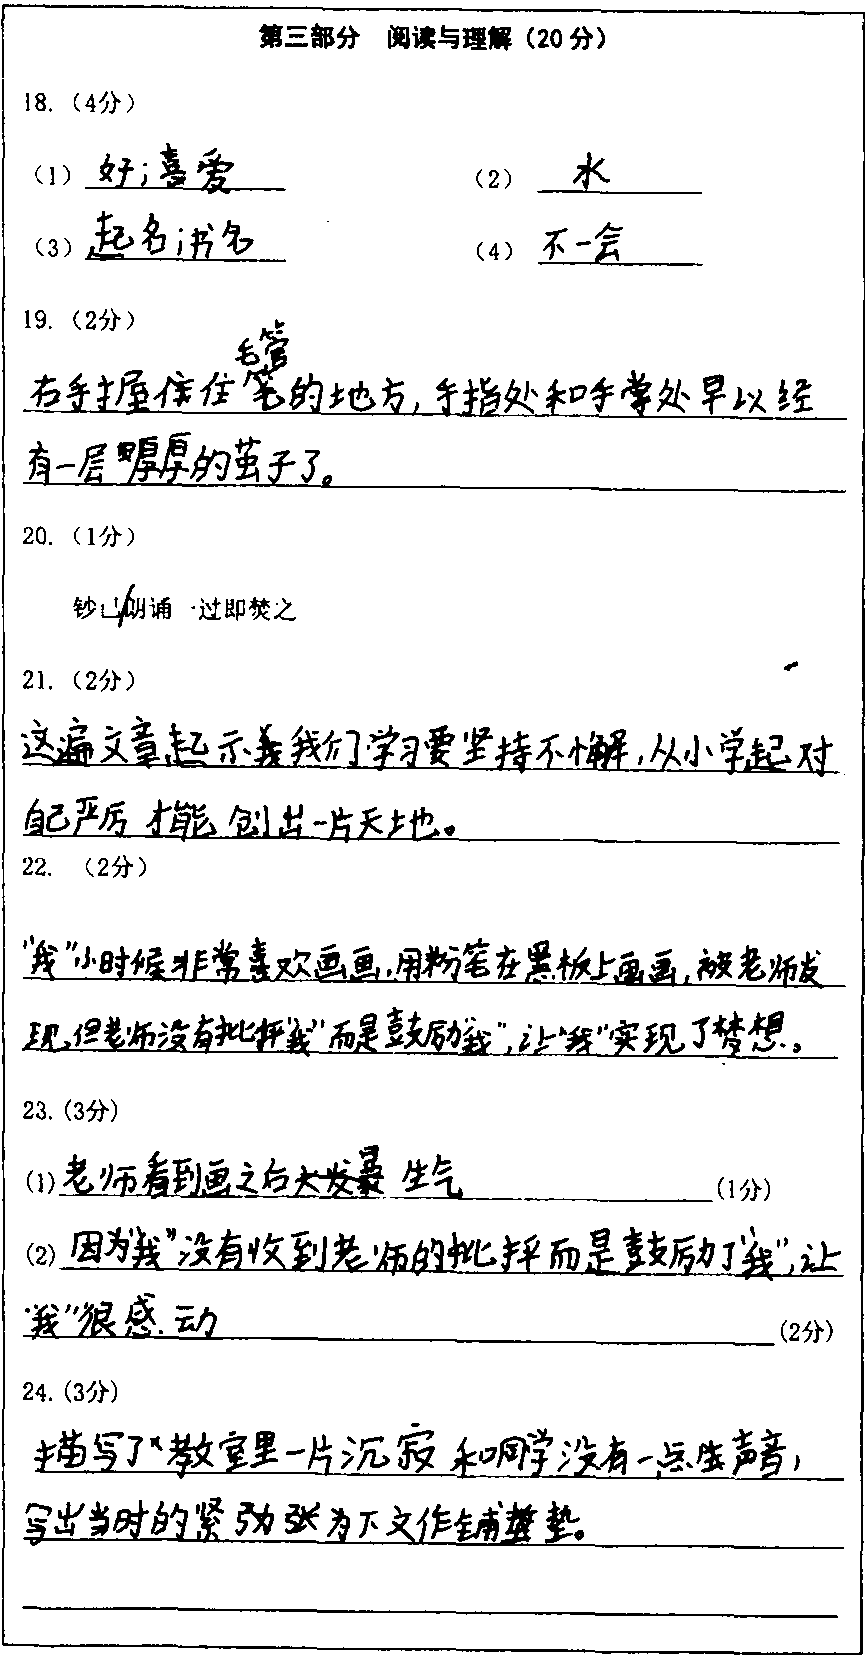 第三部分 阅读与理解（20分）
18.（4分）
（1） 好；喜爱 （2） 水
（3） 起名；书名 （4） 不一会
19.（2分）
毛管
右手握住笔的地方，手指处和手掌处早以经
有一层厚厚的茧子了。
20.（1分）
钞 朗诵 过即焚之
21.（2分）
这遍文章起示我们学习要坚持不懈，从小学起对
自己严厉才能创出一片天地。
22. （2分）
“我”小时候非常喜欢画画，用粉笔在黑板上画画，被老师发
现，但老师没有批抨“我”而是鼓励“我”，让“我”实现了梦想。
23.(3分)
(1) 老师看到画之后大发暴 生气 (1分)
(2) 因为“我”没有收到老师的批抨而是鼓励了“我”，让
“我”很感动 (2分)
24.(3分)
描写了教室里一片沉寂和同学没有一点声音，
写出当时的紧张为下文作铺垫。